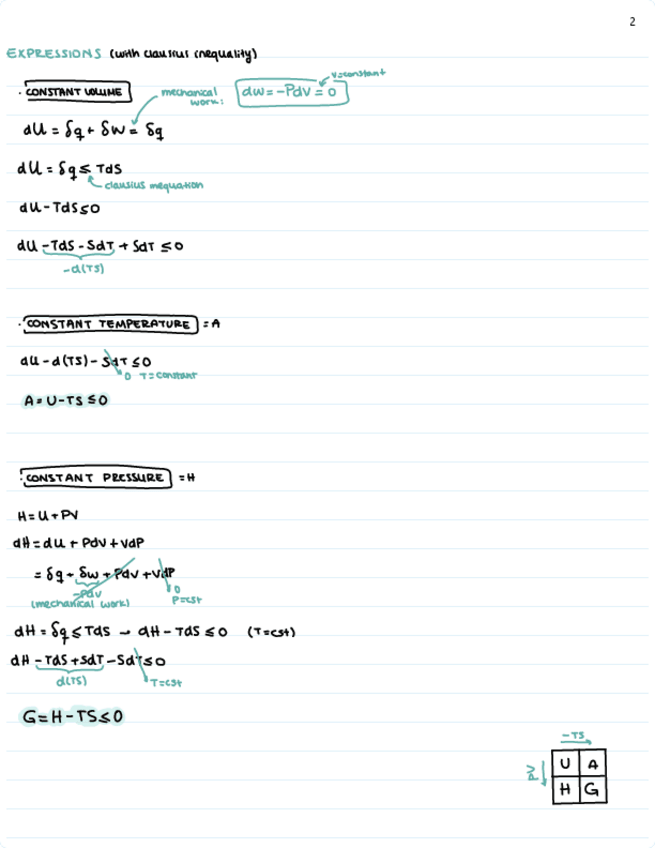 2
EXPRESSIONS (with clausius inequality)
· CONSTANT VOLUME
mechanical work:
dw = -Pdv = 0
v=constant
dU = δq + δw = δq
dU = δq ≤ TdS
clausius inequation
dU - TdS ≤ 0
dU - TdS - SdT + SdT ≤ 0
-d(TS)
· CONSTANT TEMPERATURE = A
dU - d(TS) - SdT ≤ 0
0 T = constant
A = U - TS ≤ 0
· CONSTANT PRESSURE = H
H = U + PV
dH = dU + Pdv + vdP
= δq + δw + Pdv + vdP
-Pdv
(mechanical work)
0
P=cst
dH = δq ≤ TdS → dH - TdS ≤ 0 (T=cst)
dH - TdS + SdT - SdT ≤ 0
d(TS)
T=cst
G = H - TS ≤ 0
-TS
PV
U A
H G